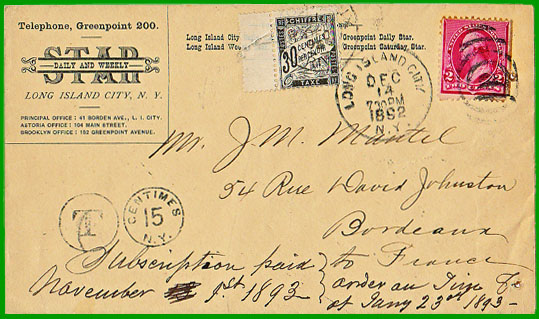 Telephone, Greenpoint 200.
STAR
DAILY AND WEEKLY
LONG ISLAND CITY, N. Y.
PRINCIPAL OFFICE: 41 BORDEN AVE., L. I. CITY.
ASTORIA OFFICE: 104 MAIN STREET.
BROOKLYN OFFICE: 152 GREENPOINT AVENUE.
Long Island City
Greenpoint Daily Star.
Long Island Wee
Greenpoint Saturday Star.
CHIFFRE
30
CENTIMES
TAXE
LONG ISLAND CITY
DEC
14
730PM
1892
N.Y.
2 2
TWO CENTS
Mr. J. M. Mantel
54 Rue David Johnston
Bordeaux
France
T
CENTIMES
15
N.Y.
Subscription paid to
November 1st 1893
order on
of Jany 23rd 1893-